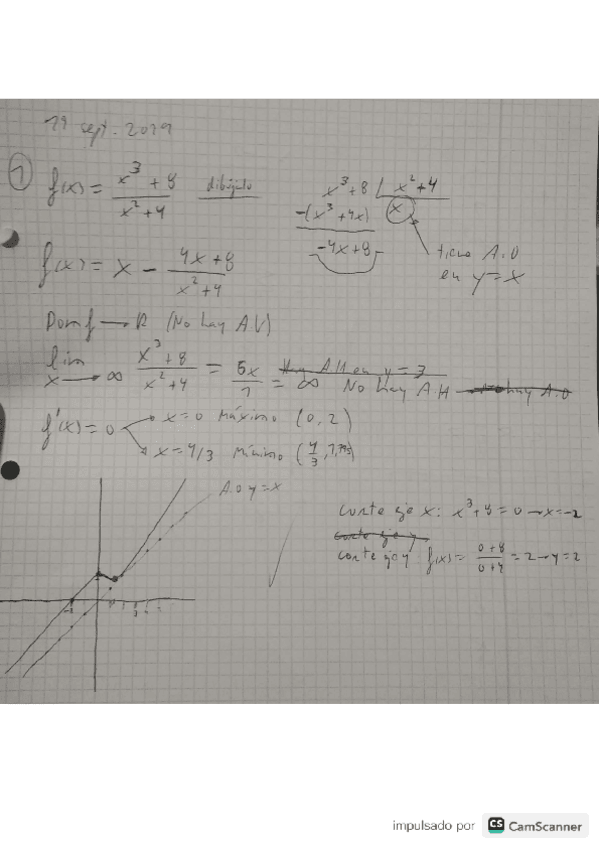 19 sept. 2019
① f(x) = (x³+8)/(x²+4) dibújalo
x³+8 | x²+4
-(x³+4x) x
-4x+8
tiene A.O
en y=x
f(x) = x - (4x+8)/(x²+4)
Dom f → R (No hay A.V)
lim x→∞ (x³+8)/(x²+4) = 6x/2 = ∞ No hay A.H
f'(x)=0
x=0 Máximo (0, 2)
x=4/3 Mínimo
A.O y=x
-2
corte eje x: x³+8=0 → x=-2
corte eje y f(x) = (0+8)/(0+4) = 2 → y=2
impulsado por CS CamScanner